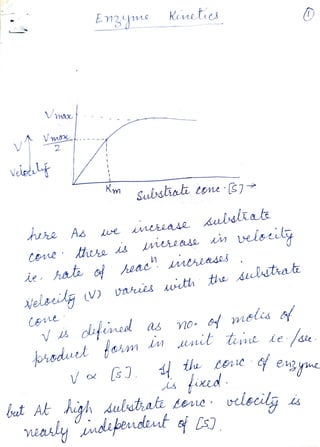 Enzyme Kinetics
1
Vmax
V
Vmax/2
Velocity
Km
Substrate conc. [S] →
here As we increase substrate
conc. there is increase in velocity
ie. rate of reacⁿ. increases.
Velocity (V) varies with the substrate
conc.
V is defined as no. of moles of
product form in unit time ie /sec.
V ∝ [S]. If the conc. of enzyme
is fixed.
but At high substrate conc. velocity is
nearly independent of [S].